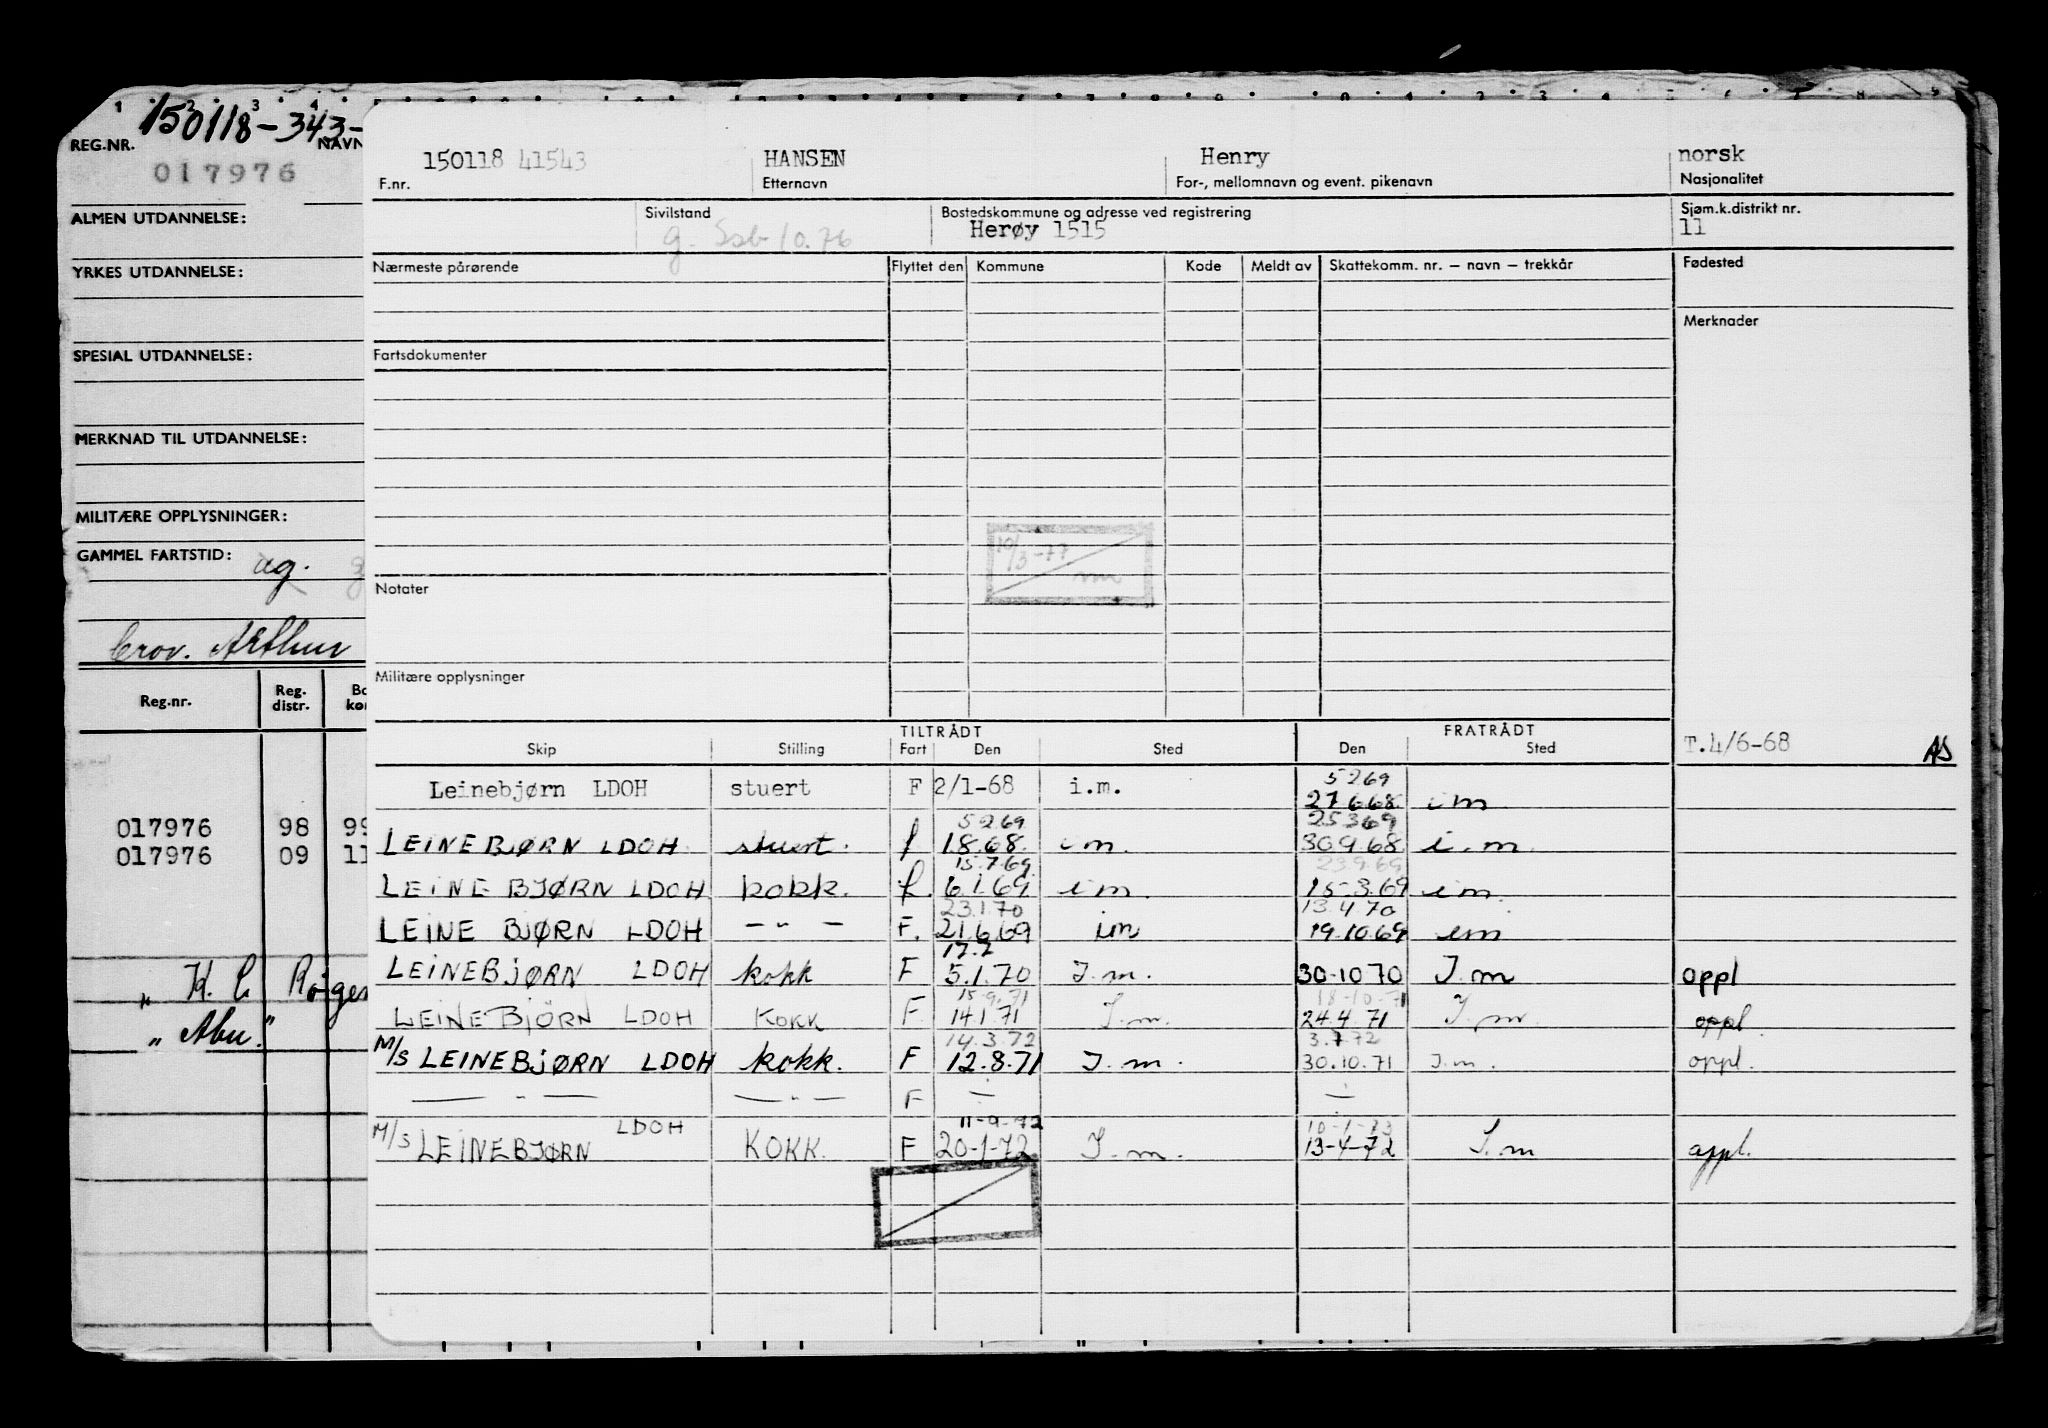 150118-343-
REG.NR. NAVN
017976
ALMEN UTDANNELSE:
YRKES UTDANNELSE:
SPESIAL UTDANNELSE:
MERKNAD TIL UTDANNELSE:
MILITÆRE OPPLYSNINGER:
GAMMEL FARTSTID: ag.
Crov. Arthur
Reg.nr. Reg. distr. Bo kor
017976 98 99
017976 09 11
" K. C Røgen
" Abu."
150118 41543 HANSEN Henry norsk
F.nr. Etternavn For-, mellomnavn og event. pikenavn Nasjonalitet
Sivilstand Bostedskommune og adresse ved registrering Sjøm.k.distrikt nr.
g. Ssb 10.76 Herøy 1515 11
Nærmeste pårørende Flyttet den Kommune Kode Meldt av Skattekomm. nr. – navn – trekkår Fødested
Merknader
Fartsdokumenter
10/3-77
Notater
Militære opplysninger
TILTRÅDT FRATRÅDT
Skip Stilling Fart Den Sted Den Sted T.4/6-68 AS
5269
Leinebjørn LDOH stuert F 2/1-68 i.m. 27668 im
5269 25369
LEINEBJØRN LDOH. stuert. f 1868. im. 30968 i.m.
15.7.69 23969
LEINE BJØRN LDOH kokk. f. 6.1.69 im 15-3.69 im
23.1.70 13.4.70
LEINE BJØRN LDOH — " — F. 21.6.69 im 19.10.69 im
17.7
LEINEBJØRN LDOH kokk F 5.1.70 I.m. 30-10 70 I.m oppl
15-9.71 18-10-71
LEINEBJÖRN LDOH KOKK F 14.1.71 I.m. 24.4 71 I.m. oppl
14.3.72 3.7.72
M/S LEINEBJØRN LDOH kokk. F 12.8.71 I.m. 30.10.71 I.m. oppl.
— " — — " — F — —
11-9-72 10-1-73
M/S LEINEBJØRN LDOH KOKK. F 20-1-72 I.m. 13-4-72 I.m oppl.